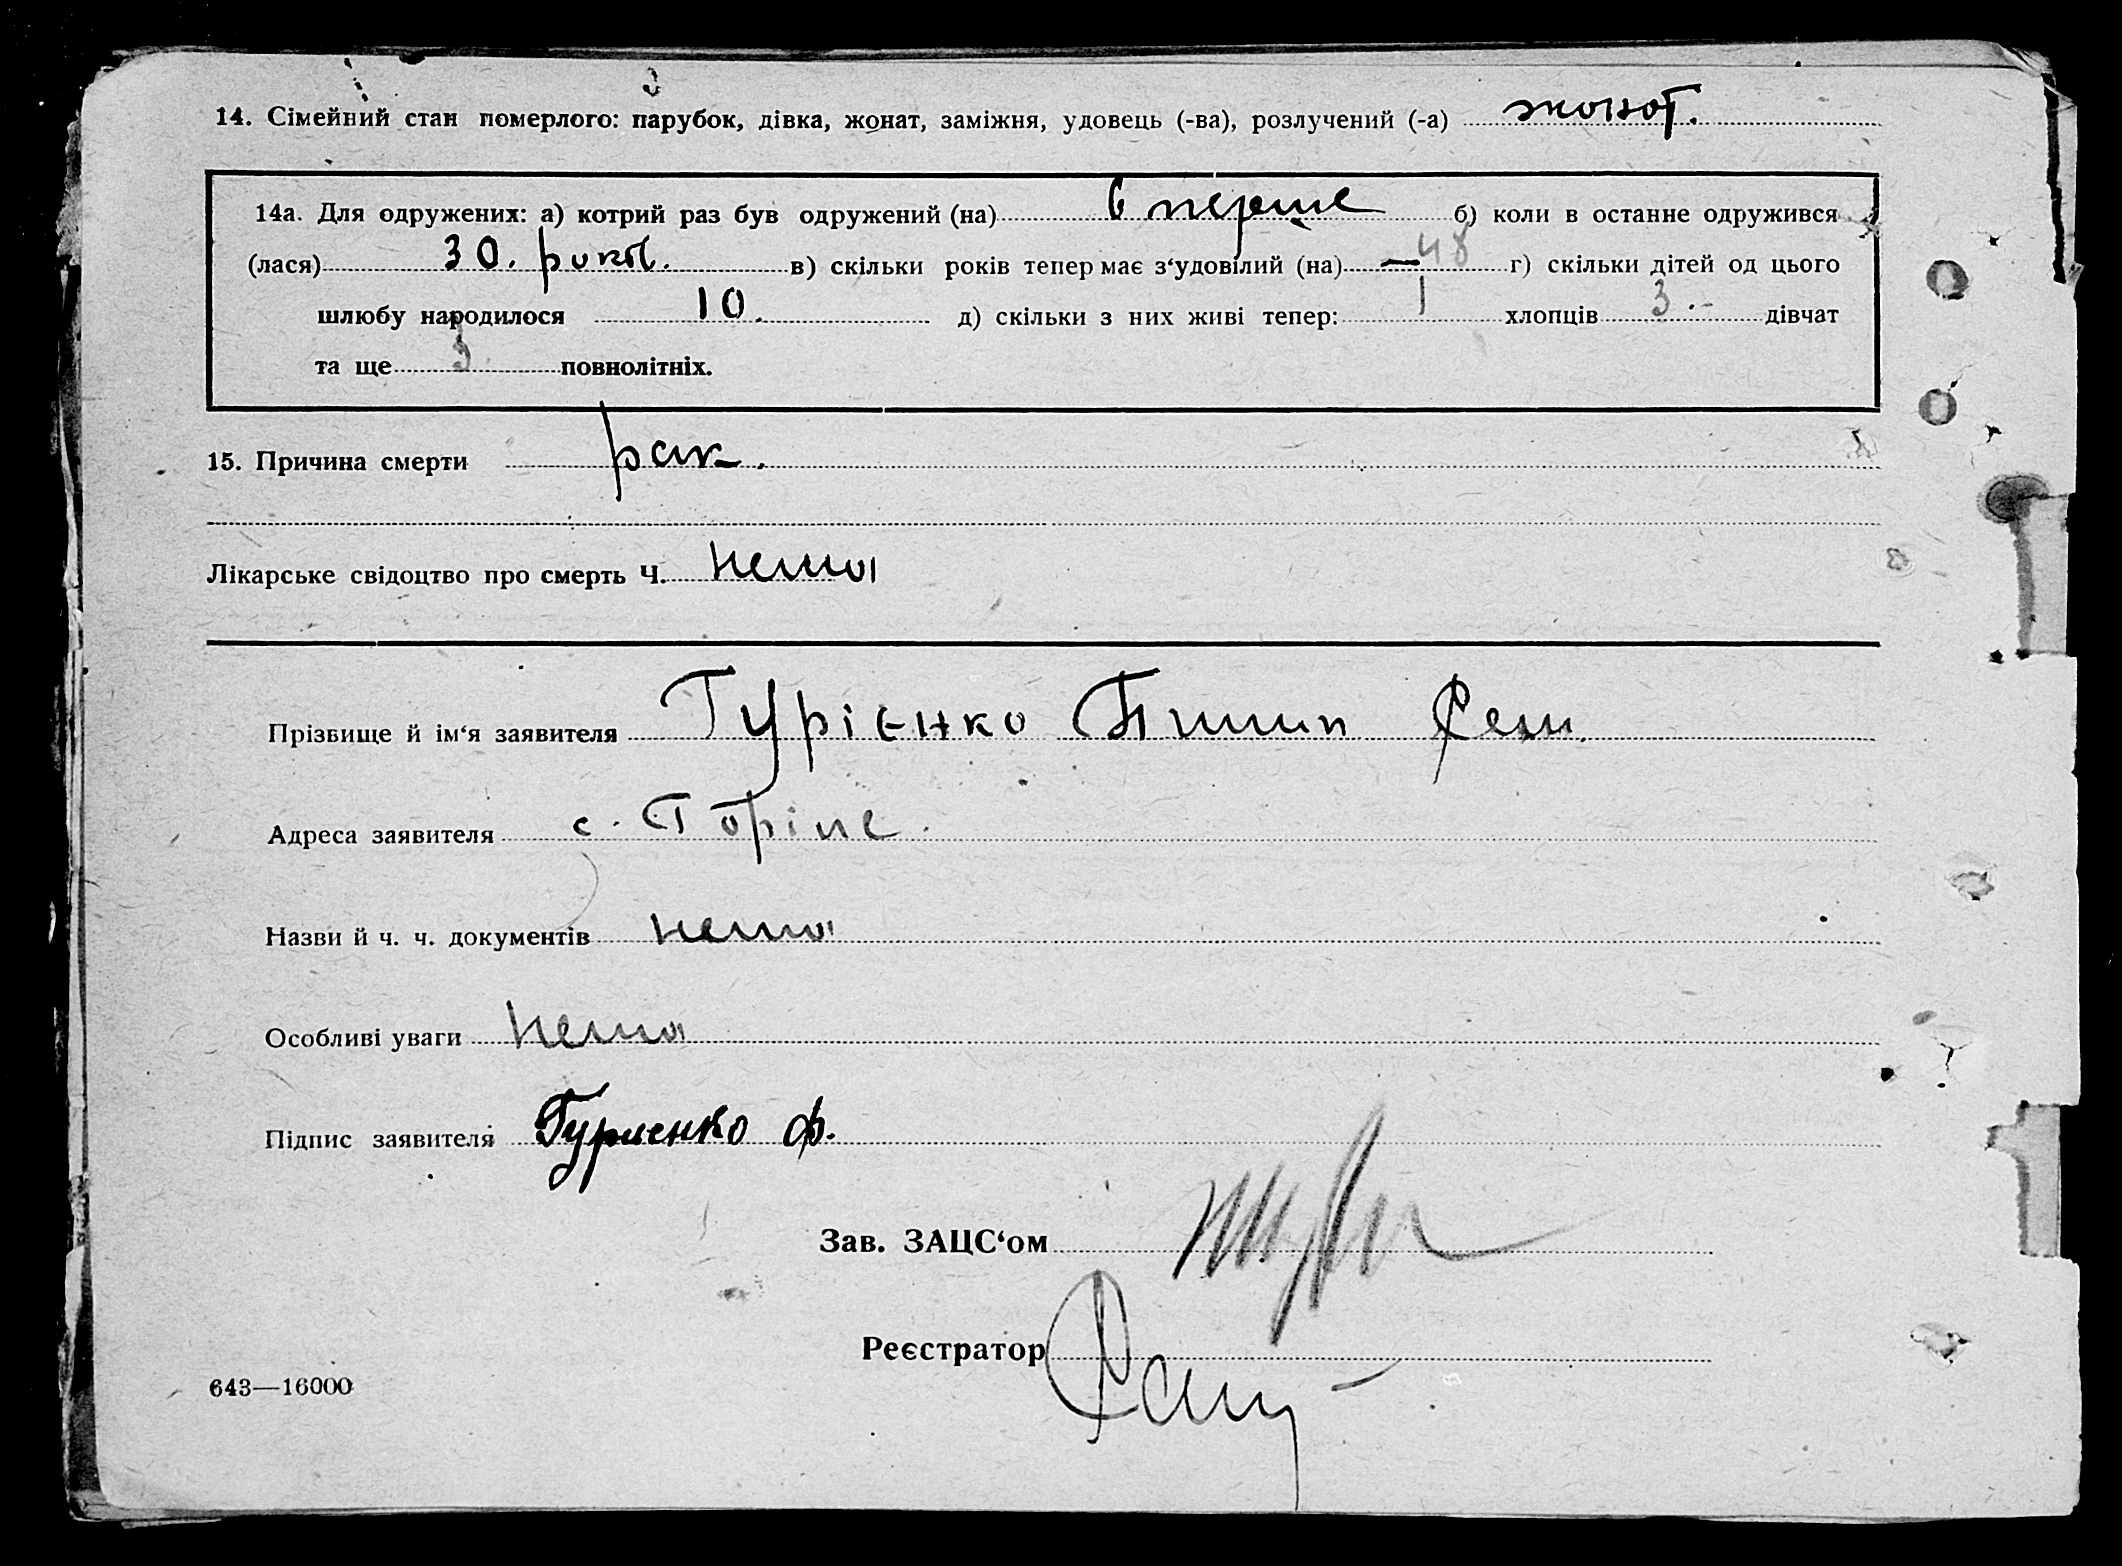 14. Сімейний стан померлого: парубок, дівка, жонат, заміжня, удовець (-ва), розлучений (-а) жонат.
14а. Для одружених: а) котрий раз був одружений (на) в перше б) коли в останнє одружився
(лася) 30. років. в) скільки років тепер має з‘удовілий (на) — 48 г) скільки дітей од цього
шлюбу народилося 10. д) скільки з них живі тепер: 1 хлопців 3 - дівчат
та ще 3 повнолітніх.
15. Причина смерти рак.
Лікарське свідоцтво про смерть Ч. нема
Прізвище й ім‘я заявителя Гурієнко Пилип
Адреса заявителя с.
Назви й ч. ч. документів нема
Особливі уваги нема
Підпис заявителя Гуриенко Ф.
Зав. ЗАЦС‘ом
Реєстратор
643—16000